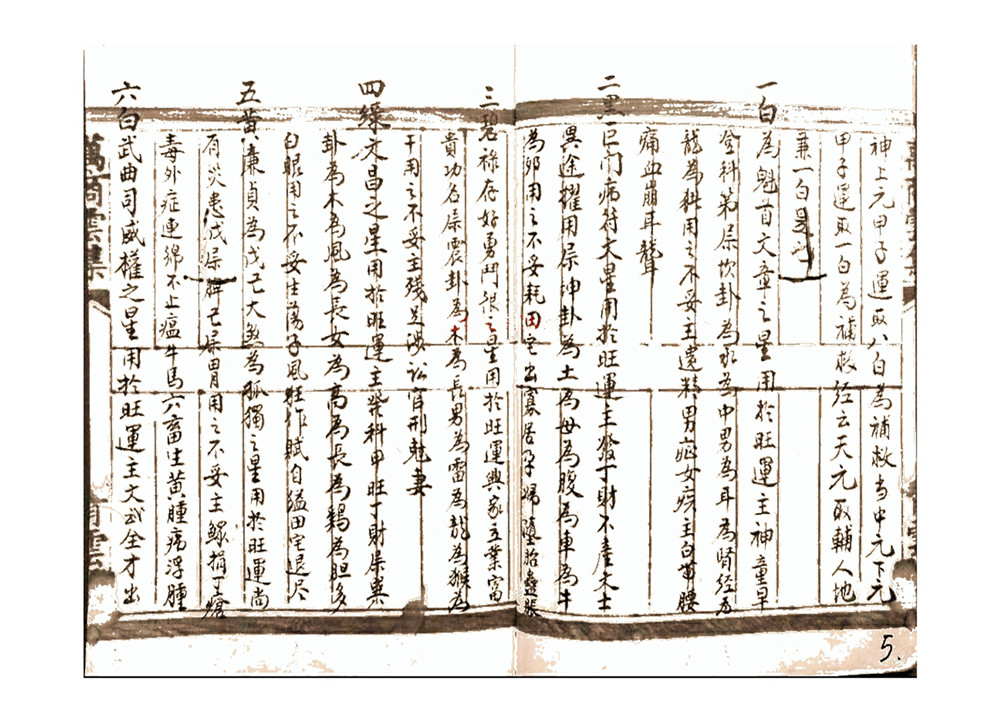 神上元甲子運取八白為補救当中元下元
甲子運取一白為補救经云天元取輔人地
兼一白是也
一白為魁首文章之星用於旺運主神童早
登科第屬坎卦為水為中男為耳為腎经云
龍為科用之不妥主遺精男症女疾主白帶腰
痛血崩耳聾
二黑巨门病符木星用於旺運主發丁財不產文士
異途擢用屬坤卦為土為母為腹為車為牛
為卯用之不妥耗田宅出寡居孕婦墮胎蠱脹
三碧禄存好勇鬥狠之星用於旺運興家立業富
貴功名屬震卦為木為長男為雷為龍為猴為
干用之不妥主残足涉訟官刑尅妻
四綠文昌之星用於旺運主癸科甲旺丁財屬巽
卦為木為風為長女為高為長為鷄為胆多
白眼用之不妥生荡子風狂作賦自縊田宅退尽
五黄廉貞為戊己大煞為孤獨之星用於旺運尚
有災患戊屬脾己屬胃用之不妥主鰥捐丁瘡
毒外症連綿不止瘟牛馬六畜生黄腫病浮腫
六白武曲司威權之星用於旺運主文武全才出
萬商雲集
5.